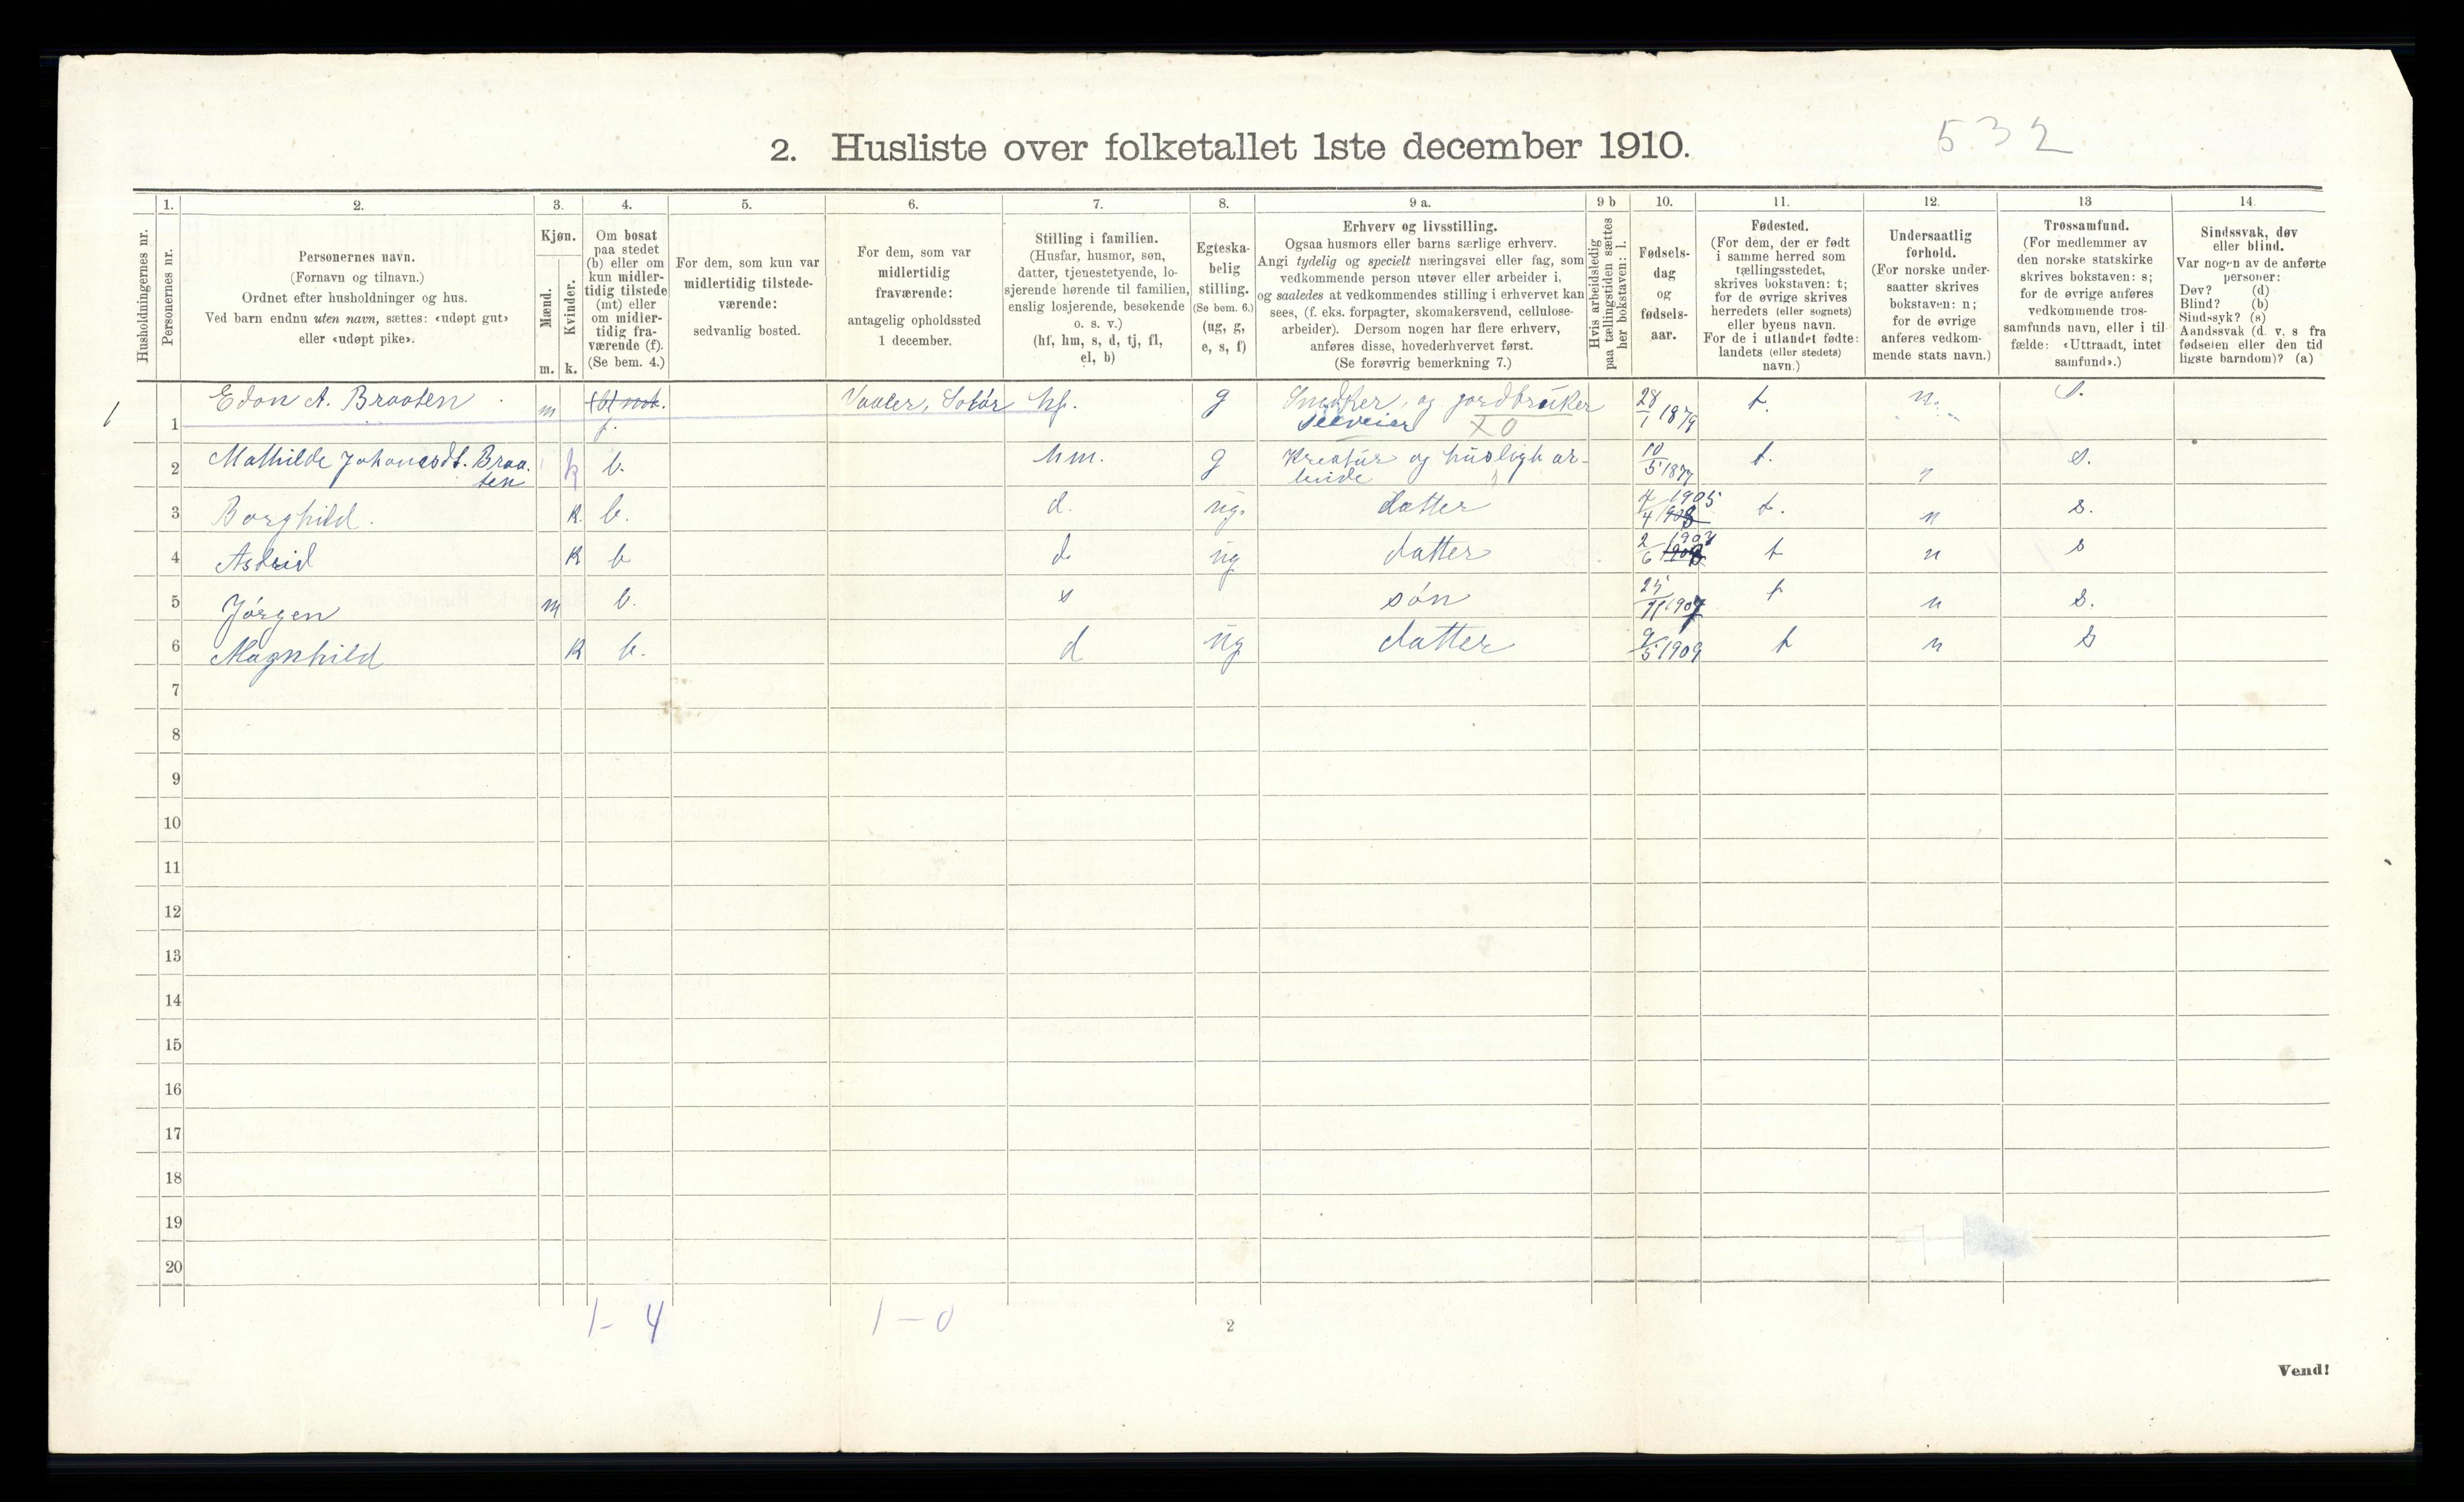 532
2. Husliste over folketallet 1ste december 1910.
Husholdningernes nr.
1.
Personernes nr.
2.
Personernes navn.
(Fornavn og tilnavn.)
Ordnet efter husholdninger og hus.
Ved barn endnu uten navn, sættes: «udøpt gut»
eller «udøpt pike».
3.
Kjøn.
Mænd.
Kvinder.
m. k.
4.
Om bosat
paa stedet
(b) eller om
kun midler-
tidig tilstede
(mt) eller
om midler-
tidig fra-
værende (f).
(Se bem. 4.)
5.
For dem, som kun var
midlertidig tilstede-
værende:
sedvanlig bosted.
6.
For dem, som var
midlertidig
fraværende:
antagelig opholdssted
1 december.
7.
Stilling i familien.
(Husfar, husmor, søn,
datter, tjenestetyende, lo-
sjerende hørende til familien,
enslig losjerende, besøkende
o. s. v.)
(hf, hm, s, d, tj, fl,
el, b)
8.
Egteska-
belig
stilling.
(Se bem. 6.)
(ug, g,
e, s, f)
9 a.
Erhverv og livsstilling.
Ogsaa husmors eller barns særlige erhverv.
Angi tydelig og specielt næringsvei eller fag, som
vedkommende person utøver eller arbeider i,
og saaledes at vedkommendes stilling i erhvervet kan
sees, (f. eks. forpagter, skomakersvend, cellulose-
arbeider). Dersom nogen har flere erhverv,
anføres disse, hovederhvervet først.
(Se forøvrig bemerkning 7.)
9 b
Hvis arbeidsledig
paa tællingstiden sættes
her bokstaven: l.
10.
Fødsels-
dag
og
fødsels-
aar.
11.
Fødested.
(For dem, der er født
i samme herred som
tællingsstedet,
skrives bokstaven: t;
for de øvrige skrives
herredets (eller sognets)
eller byens navn.
For de i utlandet fødte:
landets (eller stedets)
navn.)
12.
Undersaatlig
forhold.
(For norske under-
saatter skrives
bokstaven: n;
for de øvrige
anføres vedkom-
mende stats navn.)
13
Trossamfund.
(For medlemmer av
den norske statskirke
skrives bokstaven: s;
for de øvrige anføres
vedkommende tros-
samfunds navn, eller i til
fælde: «Uttraadt, intet
samfund».)
14.
Sindssvak, døv
eller blind.
Var nogen av de anførte
personer:
Døv? (d)
Blind? (b)
Sindssyk? (s)
Aandssvak (d. v. s fra
fødselen eller den tid
ligste barndom)? (a)
1 1 Edon A. Braaten m f. Vaaler, Solør hf. g Snedker og jordbruker 28/1 1879 t. n. s.
Selveier X0
2 Mathilde Johanesdt. Braa- k b. hm. g Kreatur og husligt ar- 10/5 1877 t. n s.
ten beide
3 Borghild. K. b. d. ug. datter 4/4 1905 t. n s.
4 Astrid K b d ug datter 2/6 t n s
5 Jørgen m b. s søn 25/11 1907 t n s.
6 Magnhild K b. d ug datter 9/5 1909 t n s
7
8
9
10
11
12
13
14
15
16
17
18
19
20
1-4 1-0
2
Vend!